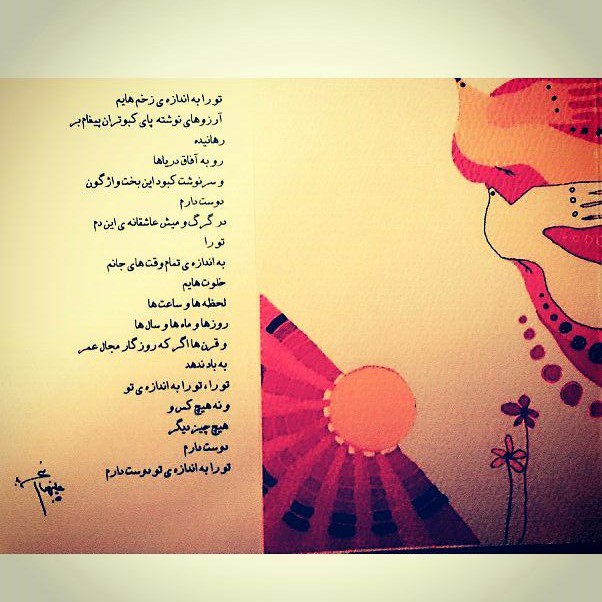 تو را به اندازه ی زخم هایم
آرزوهای نوشته پای کبوتران پیغام بر
رهانیده
رو به آفاق دریاها
و سرنوشت کبود این بخت واژگون
دوست دارم
در گرگ و میش عاشقانه ی این دم
تو را
به اندازه ی تمام وقت های جانم
خلوت هایم
لحظه ها و ساعت ها
روزها و ماه ها و سال ها
و قرن ها اگر که روزگار مجال عمر
به باد ندهد
تو را، تو را به اندازه ی تو
و نه هیچ کس و
هیچ چیز دیگر
دوست دارم
تو را به اندازه ی تو دوست دارم